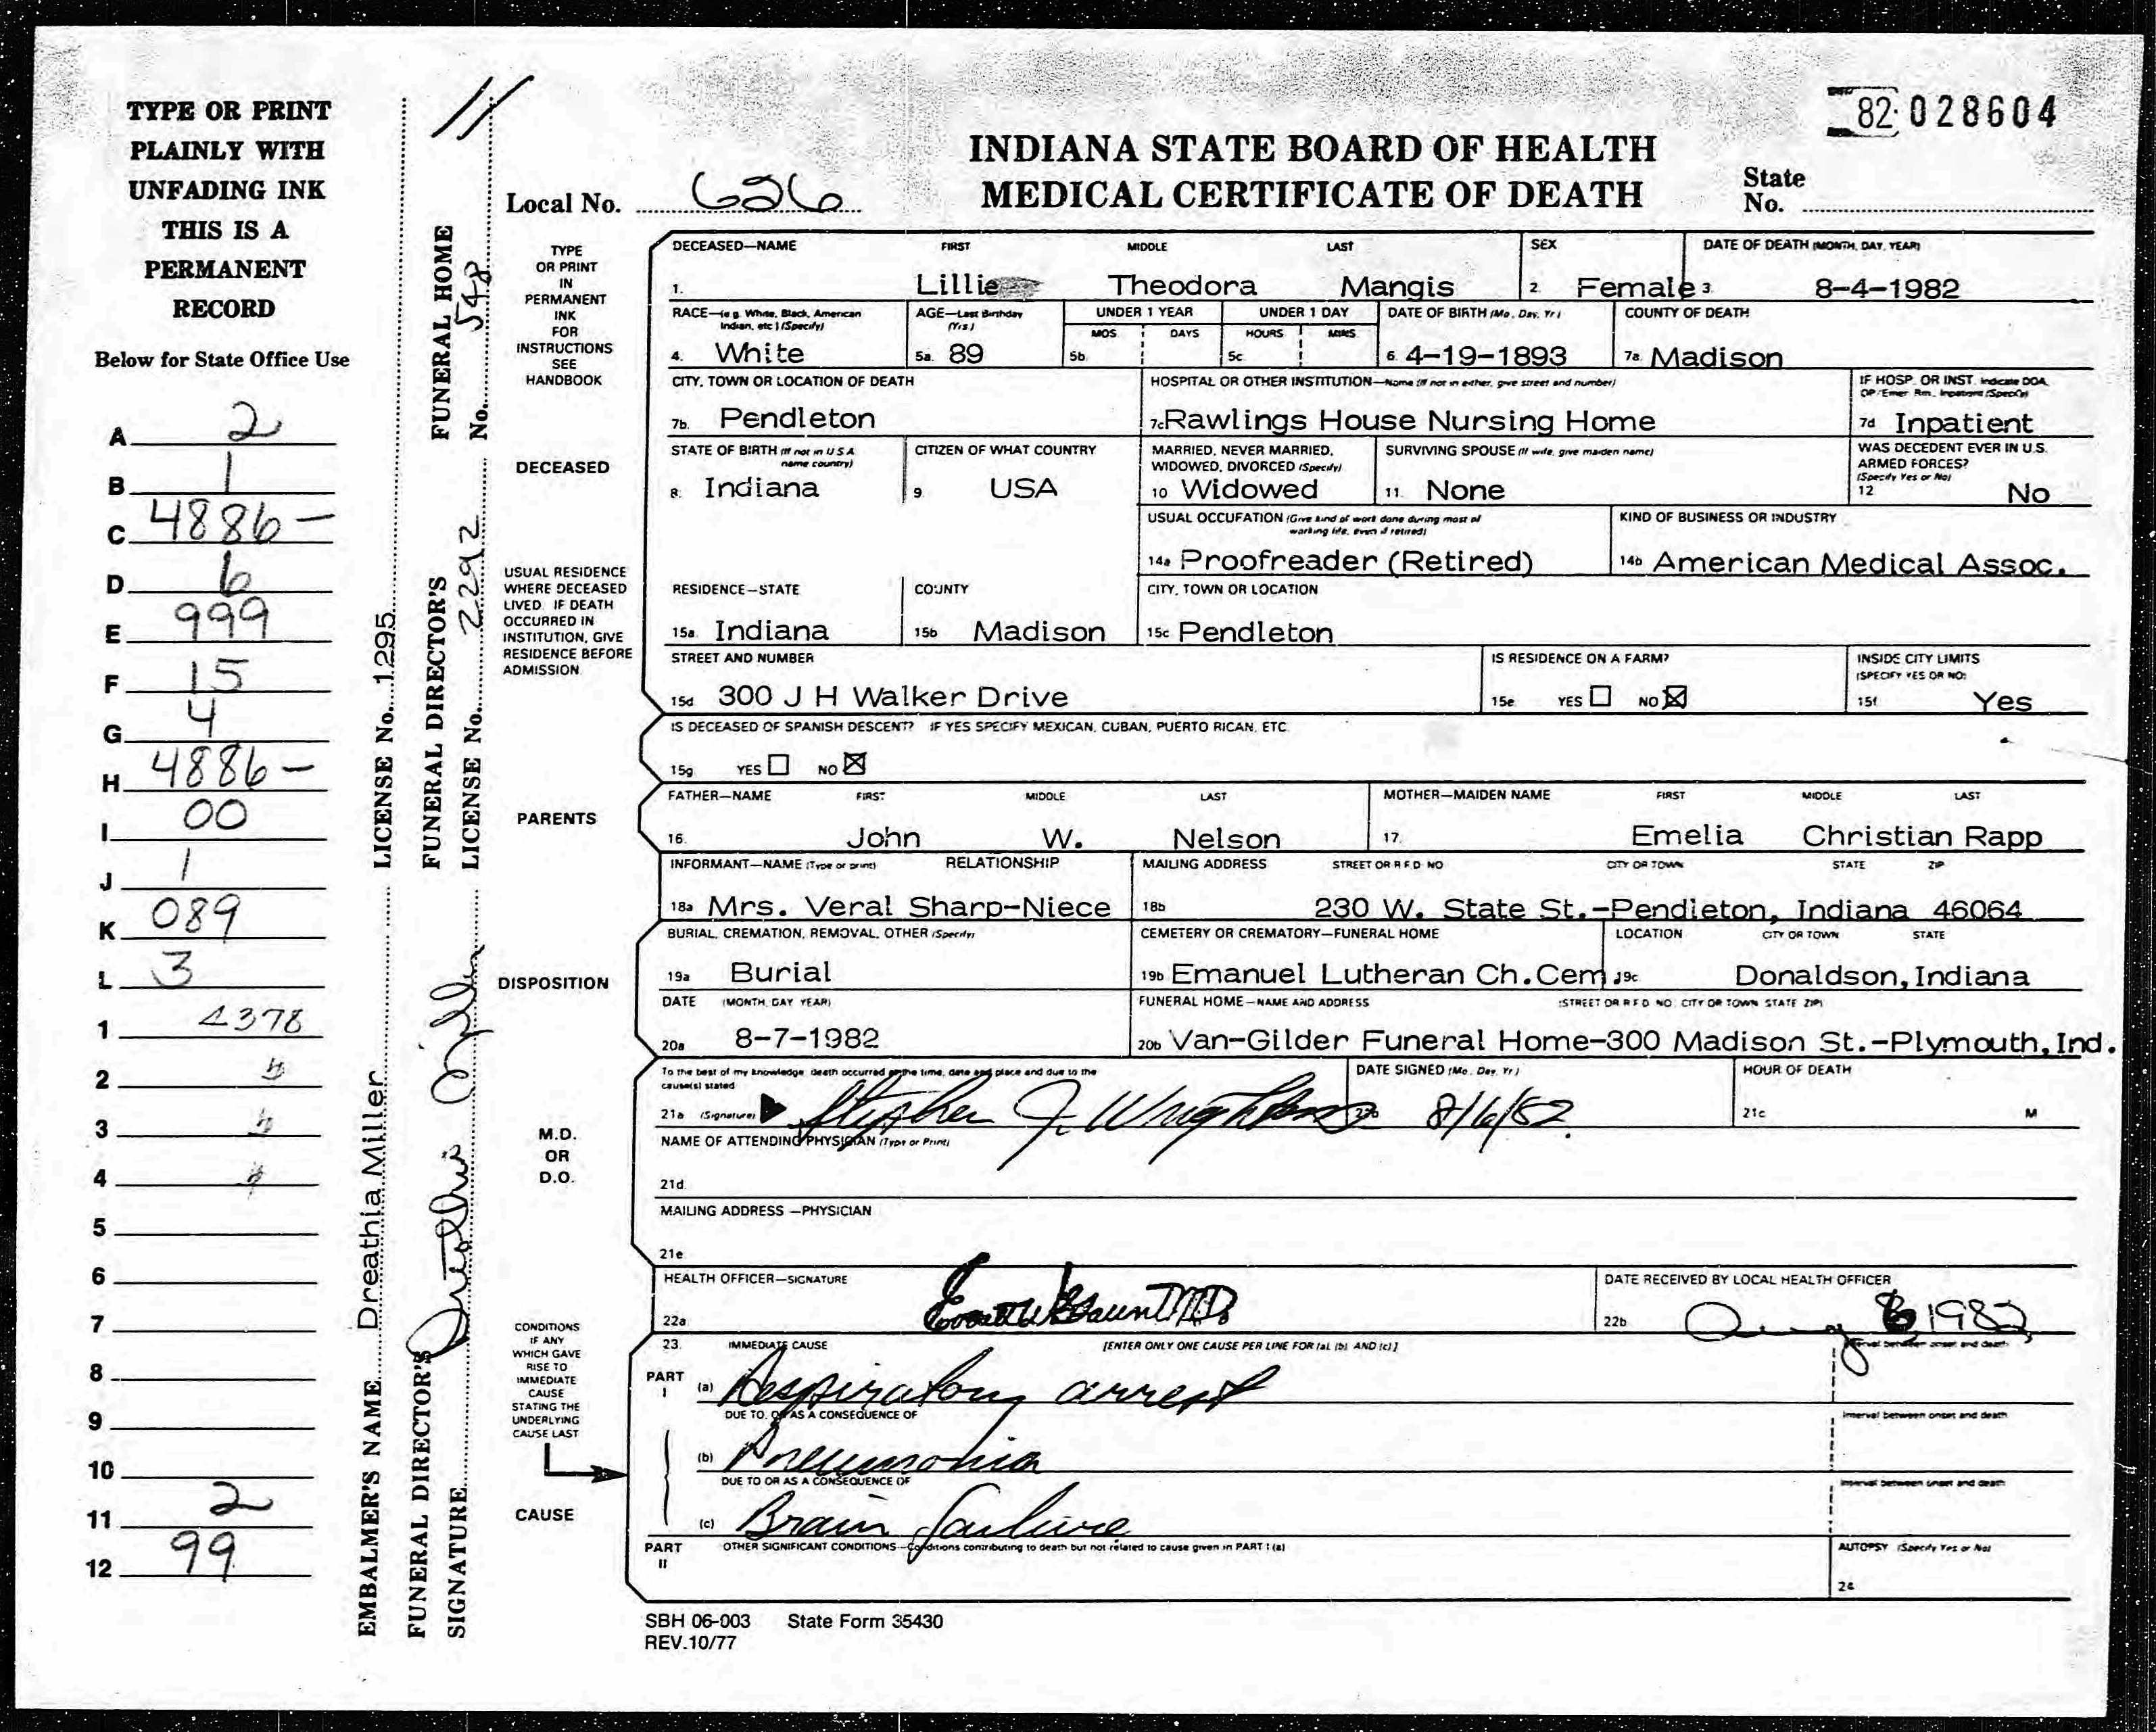 TYPE OR PRINT
PLAINLY WITH
UNFADING INK
THIS IS A
PERMANENT
RECORD
Below for State Office Use
A 2
B 1
C 4886-
D 6
E 999
F 15
G 4
H 4886-
I 00
J 1
K 089
L 3
1 4378
2
3
4
5
6
7
8
9
10
11 2
12 99
EMBALMER'S NAME Dreathia Miller LICENSE No. 1295
FUNERAL DIRECTOR'S SIGNATURE
FUNERAL DIRECTOR'S LICENSE No. 2292
FUNERAL HOME No. 548
82 028604
INDIANA STATE BOARD OF HEALTH
MEDICAL CERTIFICATE OF DEATH
Local No. 626
State No.
TYPE
OR PRINT
IN
PERMANENT
INK
FOR
INSTRUCTIONS
SEE
HANDBOOK
DECEASED—NAME FIRST MIDDLE LAST SEX DATE OF DEATH (MONTH, DAY, YEAR)
1. Lillie Theodora Mangis 2. Female 3. 8-4-1982
RACE—(e.g. White, Black, American Indian, etc.) (Specify) AGE—Last Birthday (Yrs.) UNDER 1 YEAR UNDER 1 DAY DATE OF BIRTH (Mo., Day, Yr.) COUNTY OF DEATH
MOS DAYS HOURS MINS
4. White 5a. 89 5b. 5c. 6. 4-19-1893 7a. Madison
CITY, TOWN OR LOCATION OF DEATH HOSPITAL OR OTHER INSTITUTION—Name (If not in either, give street and number) IF HOSP. OR INST. Indicate DOA, OP/Emer. Rm., Inpatient (Specify)
7b. Pendleton 7c. Rawlings House Nursing Home 7d Inpatient
DECEASED
STATE OF BIRTH (If not in U S A name country) CITIZEN OF WHAT COUNTRY MARRIED, NEVER MARRIED, WIDOWED, DIVORCED (Specify) SURVIVING SPOUSE (If wife, give maiden name) WAS DECEDENT EVER IN U.S. ARMED FORCES? (Specify Yes or No)
8. Indiana 9. USA 10 Widowed 11. None 12 No
USUAL OCCUPATION (Give kind of work done during most of working life, even if retired) KIND OF BUSINESS OR INDUSTRY
14a Proofreader (Retired) 14b American Medical Assoc.
USUAL RESIDENCE
WHERE DECEASED
LIVED. IF DEATH
OCCURRED IN
INSTITUTION, GIVE
RESIDENCE BEFORE
ADMISSION
RESIDENCE—STATE COUNTY CITY, TOWN OR LOCATION
15a. Indiana 15b Madison 15c Pendleton
STREET AND NUMBER IS RESIDENCE ON A FARM? INSIDE CITY LIMITS (SPECIFY YES OR NO)
15d 300 J H Walker Drive 15e YES ☐ NO ☒ 15f Yes
IS DECEASED OF SPANISH DESCENT? IF YES SPECIFY MEXICAN, CUBAN, PUERTO RICAN, ETC.
15g YES ☐ NO ☒
PARENTS
FATHER—NAME FIRST MIDDLE LAST MOTHER—MAIDEN NAME FIRST MIDDLE LAST
16. John W. Nelson 17. Emelia Christian Rapp
INFORMANT—NAME (Type or print) RELATIONSHIP MAILING ADDRESS STREET OR R F D NO CITY OR TOWN STATE ZIP
18a Mrs. Veral Sharp-Niece 18b 230 W. State St.-Pendleton, Indiana 46064
DISPOSITION
BURIAL, CREMATION, REMOVAL, OTHER (Specify) CEMETERY OR CREMATORY—FUNERAL HOME LOCATION CITY OR TOWN STATE
19a Burial 19b Emanuel Lutheran Ch.Cem. 19c Donaldson, Indiana
DATE (MONTH, DAY, YEAR) FUNERAL HOME—NAME AND ADDRESS (STREET OR R F D NO. CITY OR TOWN STATE ZIP)
20a 8-7-1982 20b Van-Gilder Funeral Home-300 Madison St.-Plymouth, Ind.
M.D.
OR
D.O.
To the best of my knowledge, death occurred at the time, date and place and due to the cause(s) stated DATE SIGNED (Mo., Day, Yr.) HOUR OF DEATH
21a (Signature) Stephen J. 21b 8/6/82 21c M
NAME OF ATTENDING PHYSICIAN (Type or Print)
21d.
MAILING ADDRESS—PHYSICIAN
21e
HEALTH OFFICER—SIGNATURE DATE RECEIVED BY LOCAL HEALTH OFFICER
22a M.D. 22b Aug 1982
CONDITIONS
IF ANY
WHICH GAVE
RISE TO
IMMEDIATE
CAUSE
STATING THE
UNDERLYING
CAUSE LAST
CAUSE
23. IMMEDIATE CAUSE [ENTER ONLY ONE CAUSE PER LINE FOR (a), (b), AND (c)] Interval between onset and death
PART I (a) Respiratory arrest
DUE TO, OR AS A CONSEQUENCE OF Interval between onset and death
(b) Pneumonia
DUE TO OR AS A CONSEQUENCE OF Interval between onset and death
(c) Brain failure
PART II OTHER SIGNIFICANT CONDITIONS—Conditions contributing to death but not related to cause given in PART I (a) AUTOPSY (Specify Yes or No)
24
SBH 06-003 State Form 35430
REV.10/77